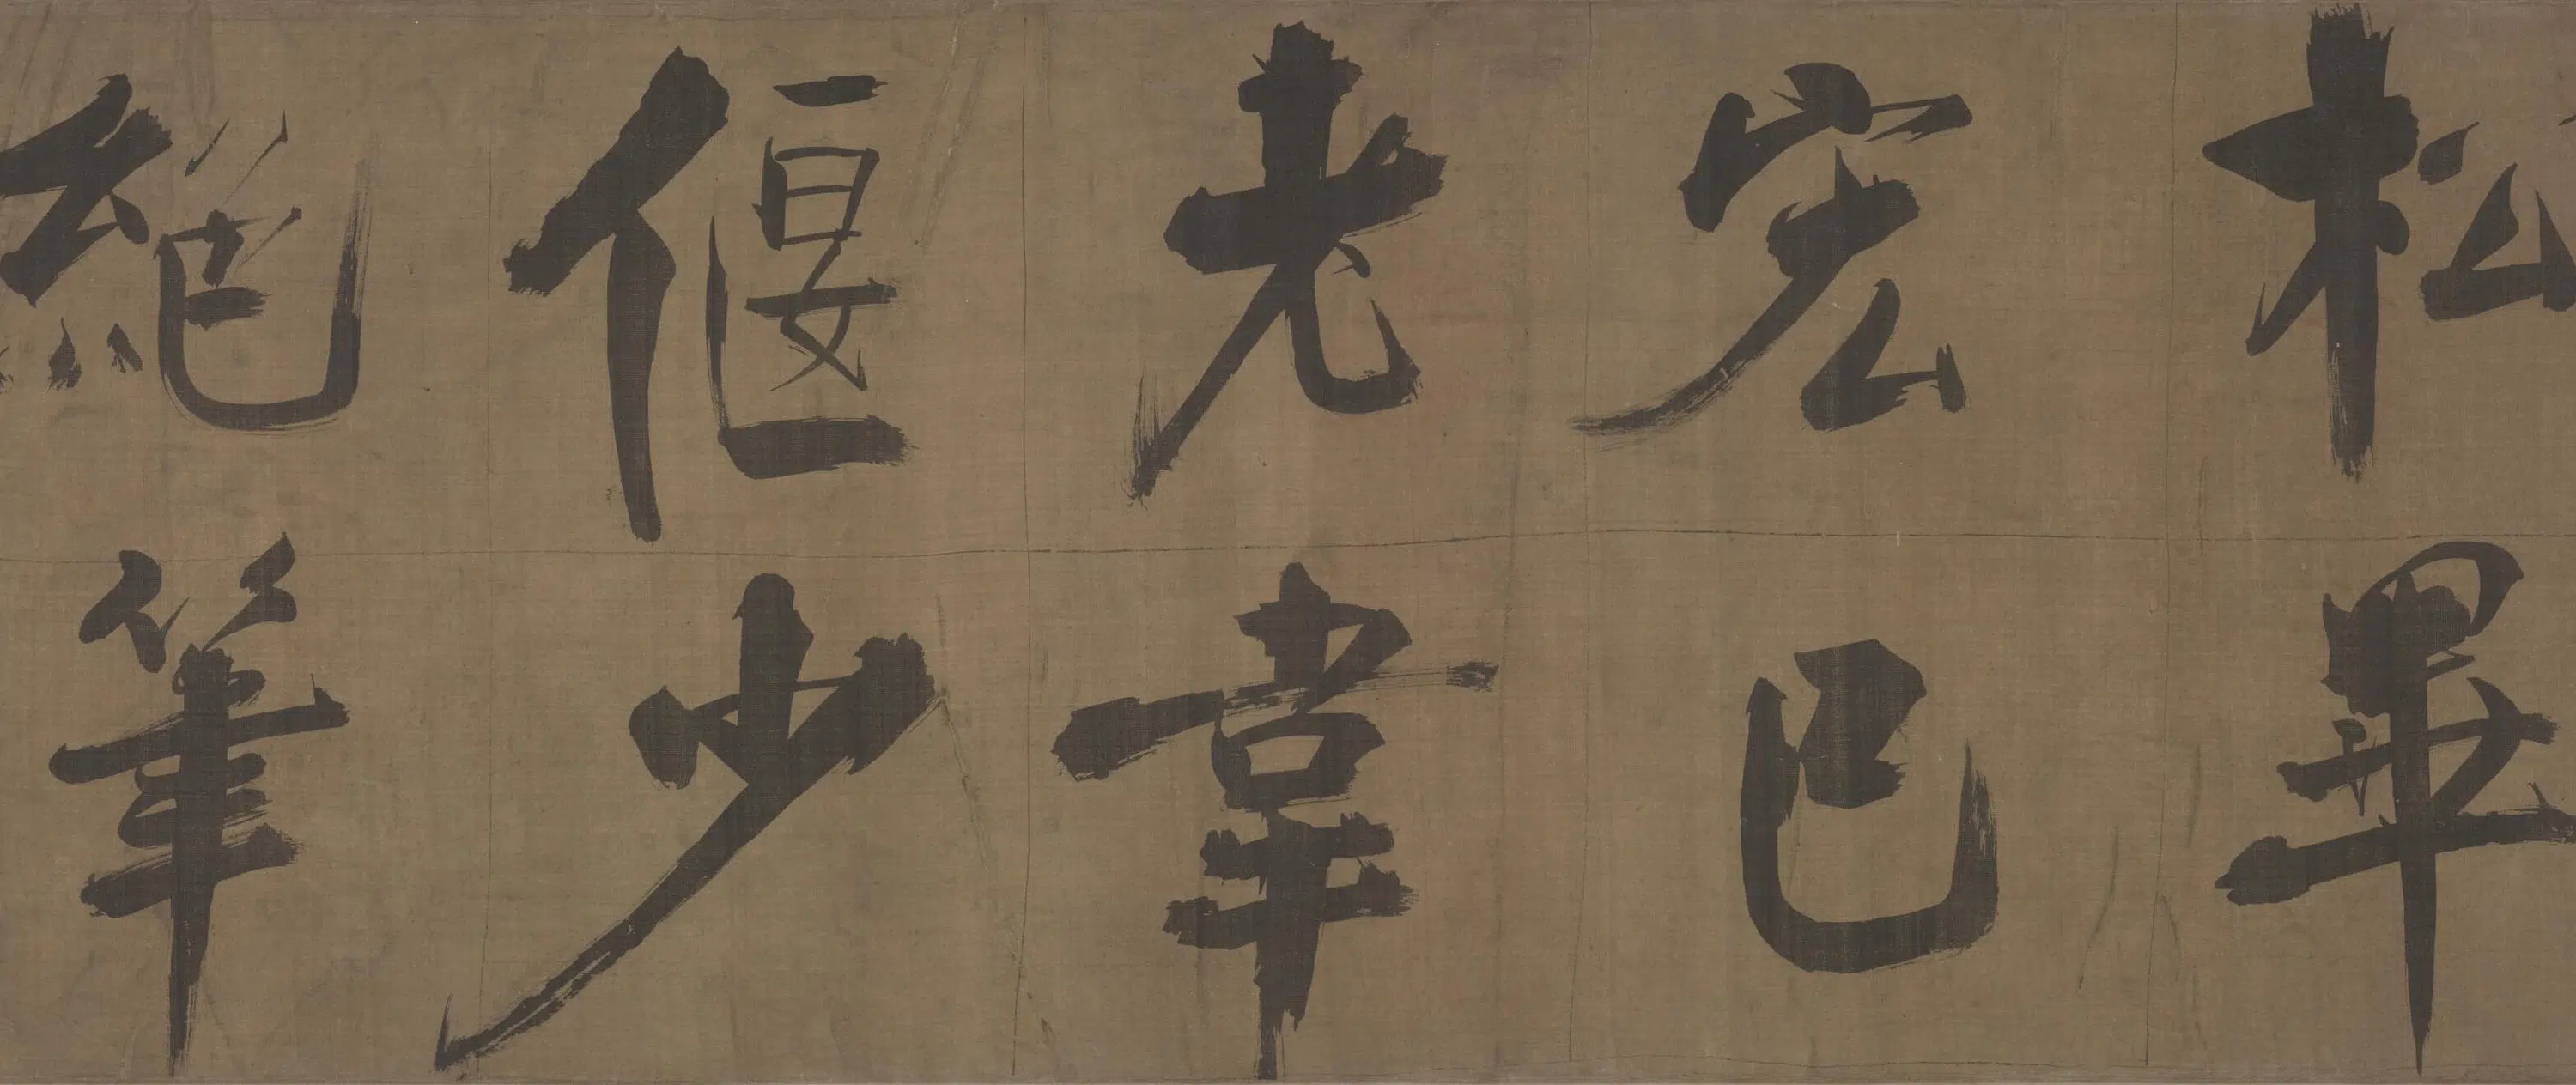 松畢
宏已
老韋
偃少
絕筆